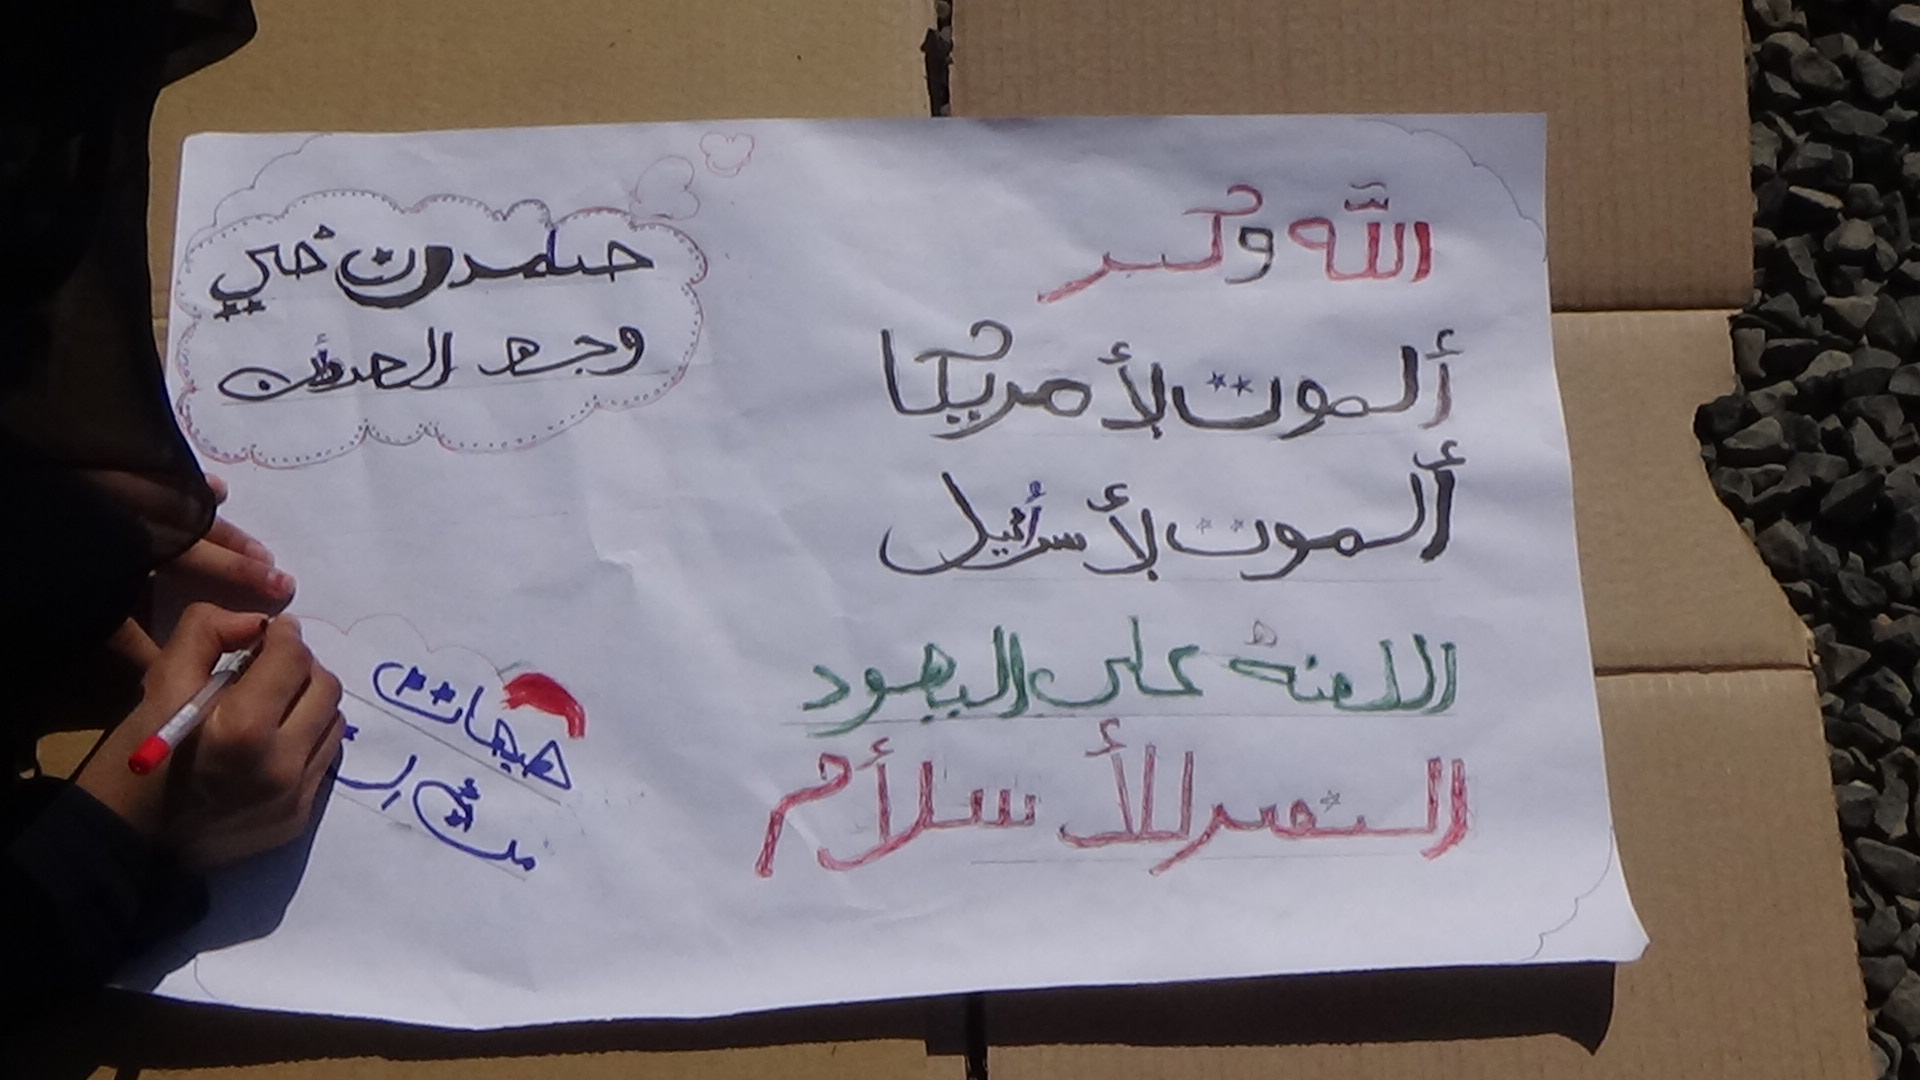 الله وكبر
ألموت لأمريكا
ألموت لأسرائيل
اللعنة على اليهود
النصر للأسلأم
صامدون في
وجه العدوأن
هيهات